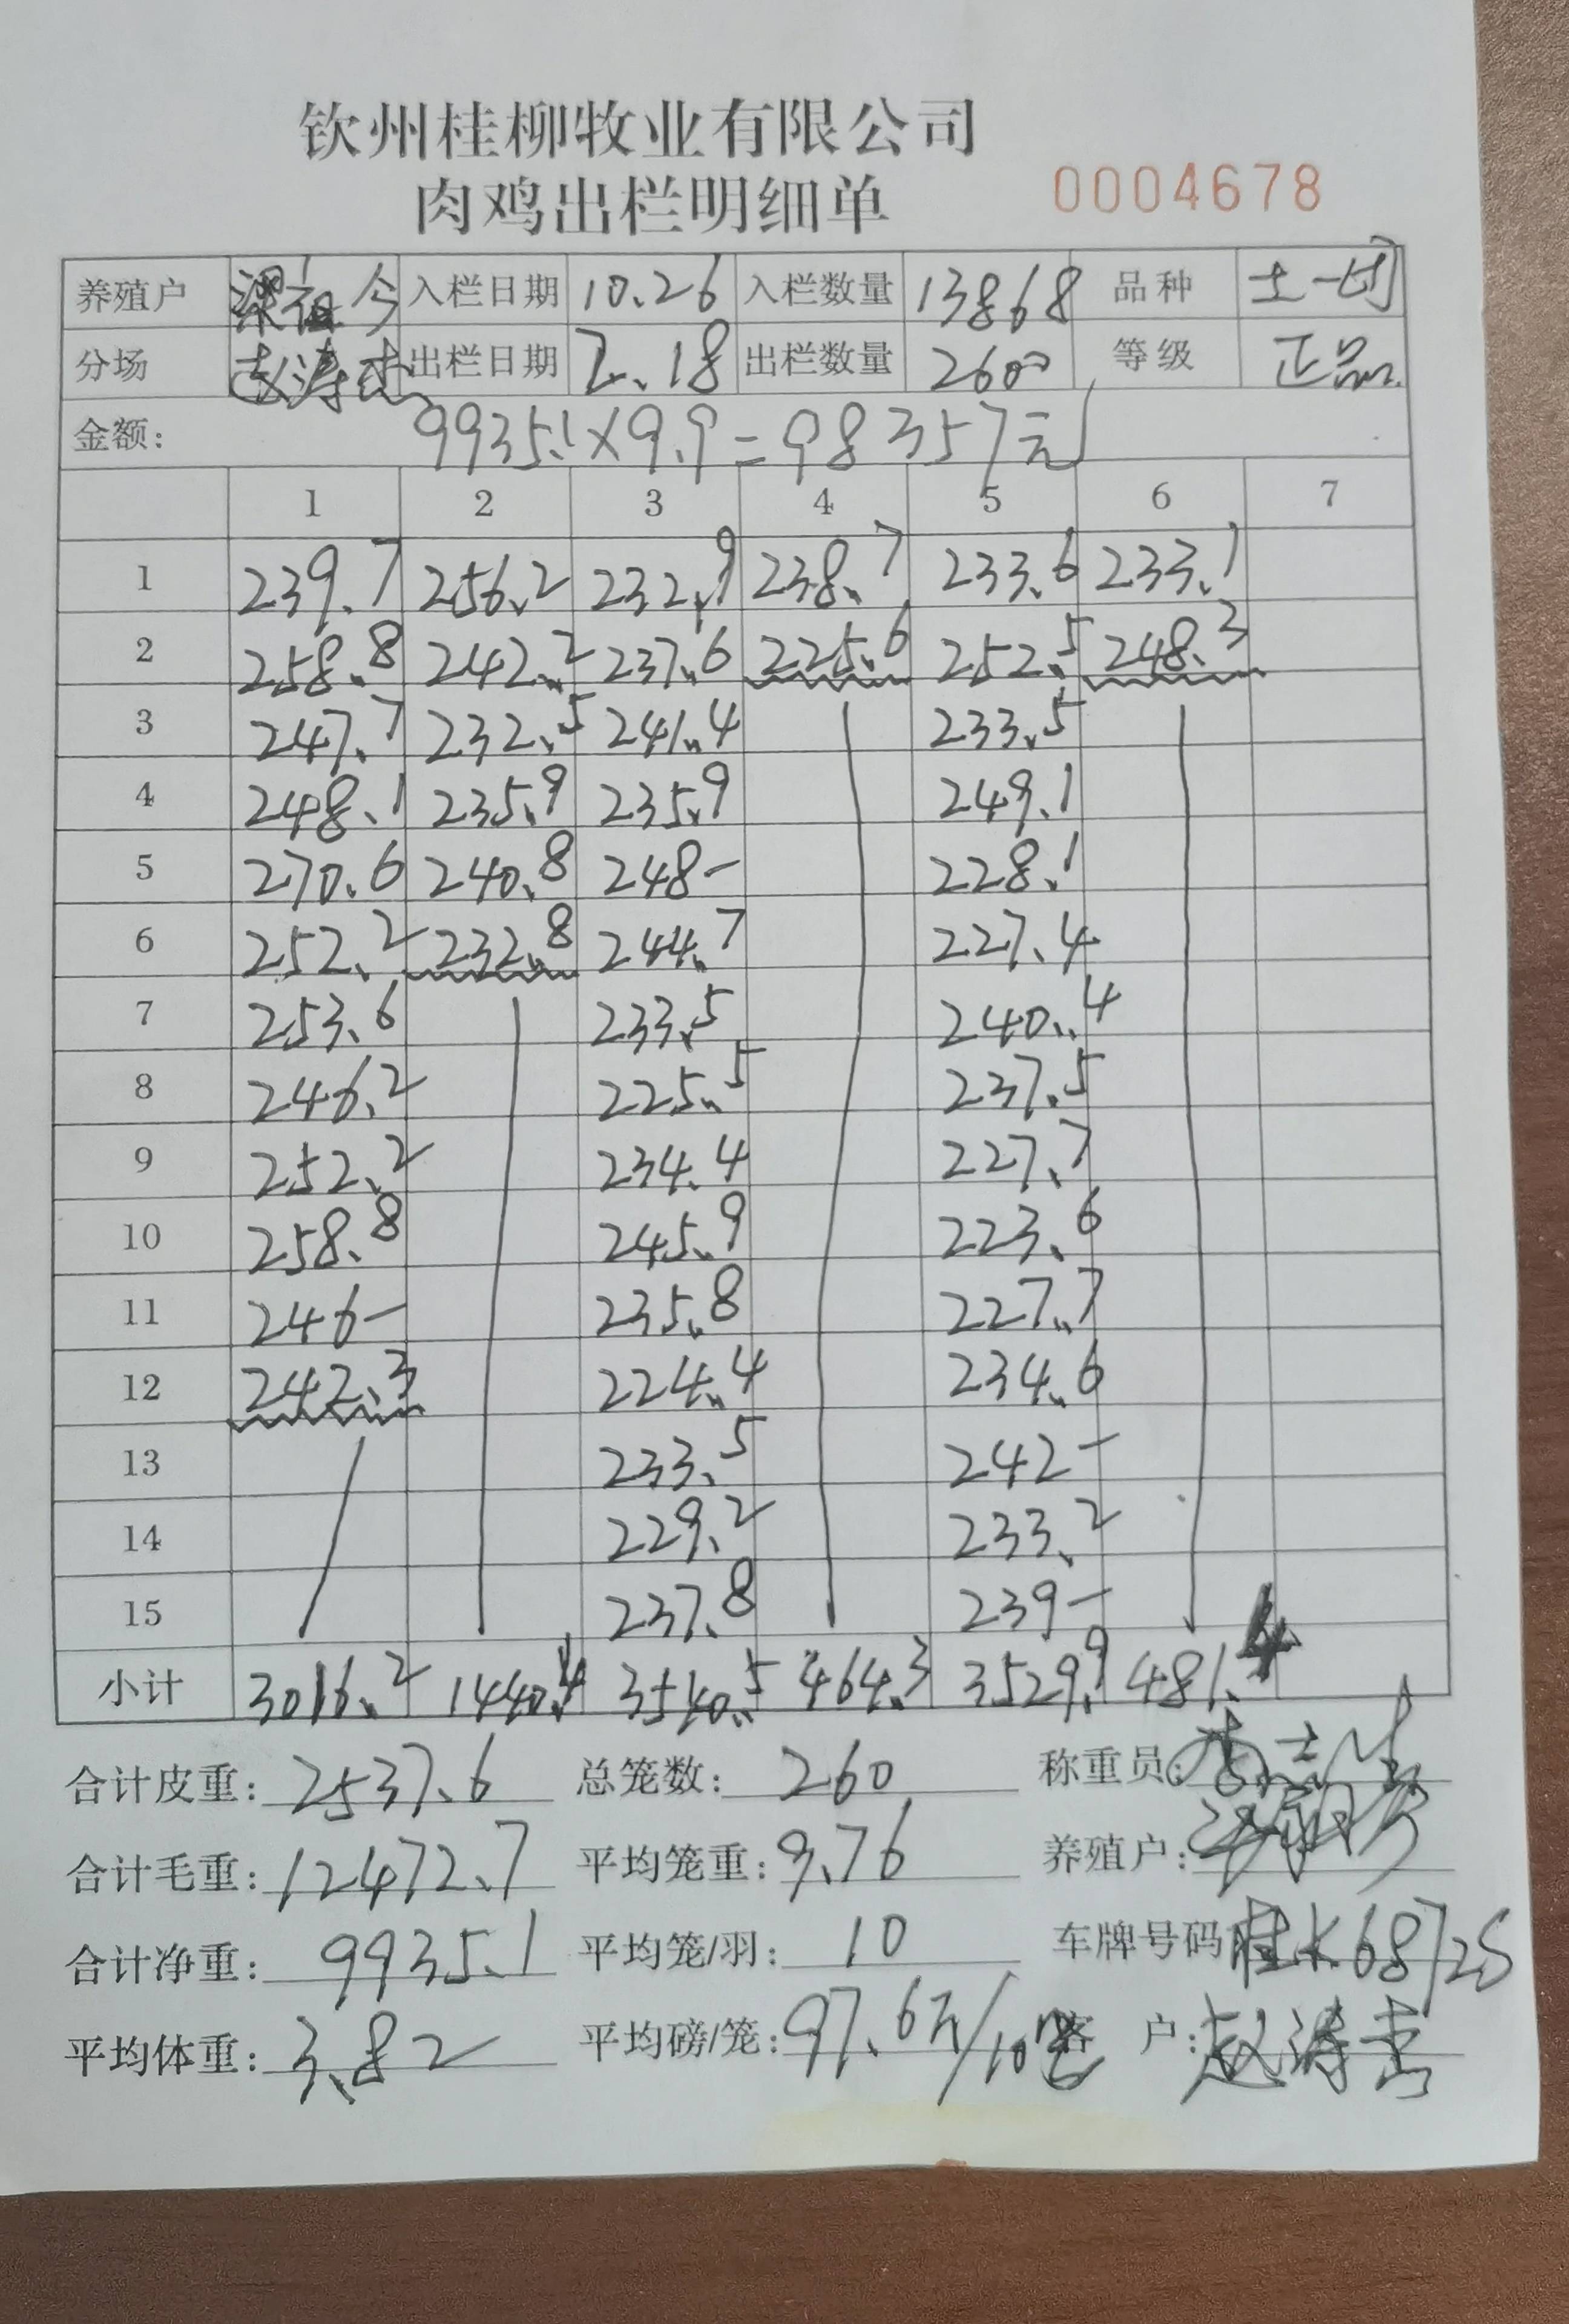 钦州桂柳牧业有限公司
肉鸡出栏明细单 0004678
养殖户 梁祖今 入栏日期 10.26 入栏数量 13868 品种 土一
分场 赵涛 出栏日期 2.18 出栏数量 2600 等级 正品
金额: 9935.1×9.9=98357元
1 2 3 4 5 6 7
1 239.7 256.2 232.9 238.7 233.6 233.1
2 258.8 242.2 237.6 225.6 252.5 248.3
3 247.7 232.5 241.4 233.5
4 248.1 235.9 235.9 249.1
5 270.6 240.8 248- 228.1
6 252.2 232.8 244.7 227.4
7 253.6 233.5 240.4
8 246.2 225.5 237.5
9 252.2 234.4 227.7
10 258.8 245.9 223.6
11 246- 235.8 227.7
12 242.3 224.4 234.6
13 233.5 242-
14 229.2 233.2
15 237.8 239-
小计 3016.2 1440.4 3540.5 464.3 3529.9 481.4
合计皮重: 2537.6 总笼数: 260 称重员:
合计毛重: 12472.7 平均笼重: 9.76 养殖户:
合计净重: 9935.1 平均笼/羽: 10 车牌号码 桂K68725
平均体重: 3.82 平均磅/笼: 97.6斤/10 客 户: 赵涛